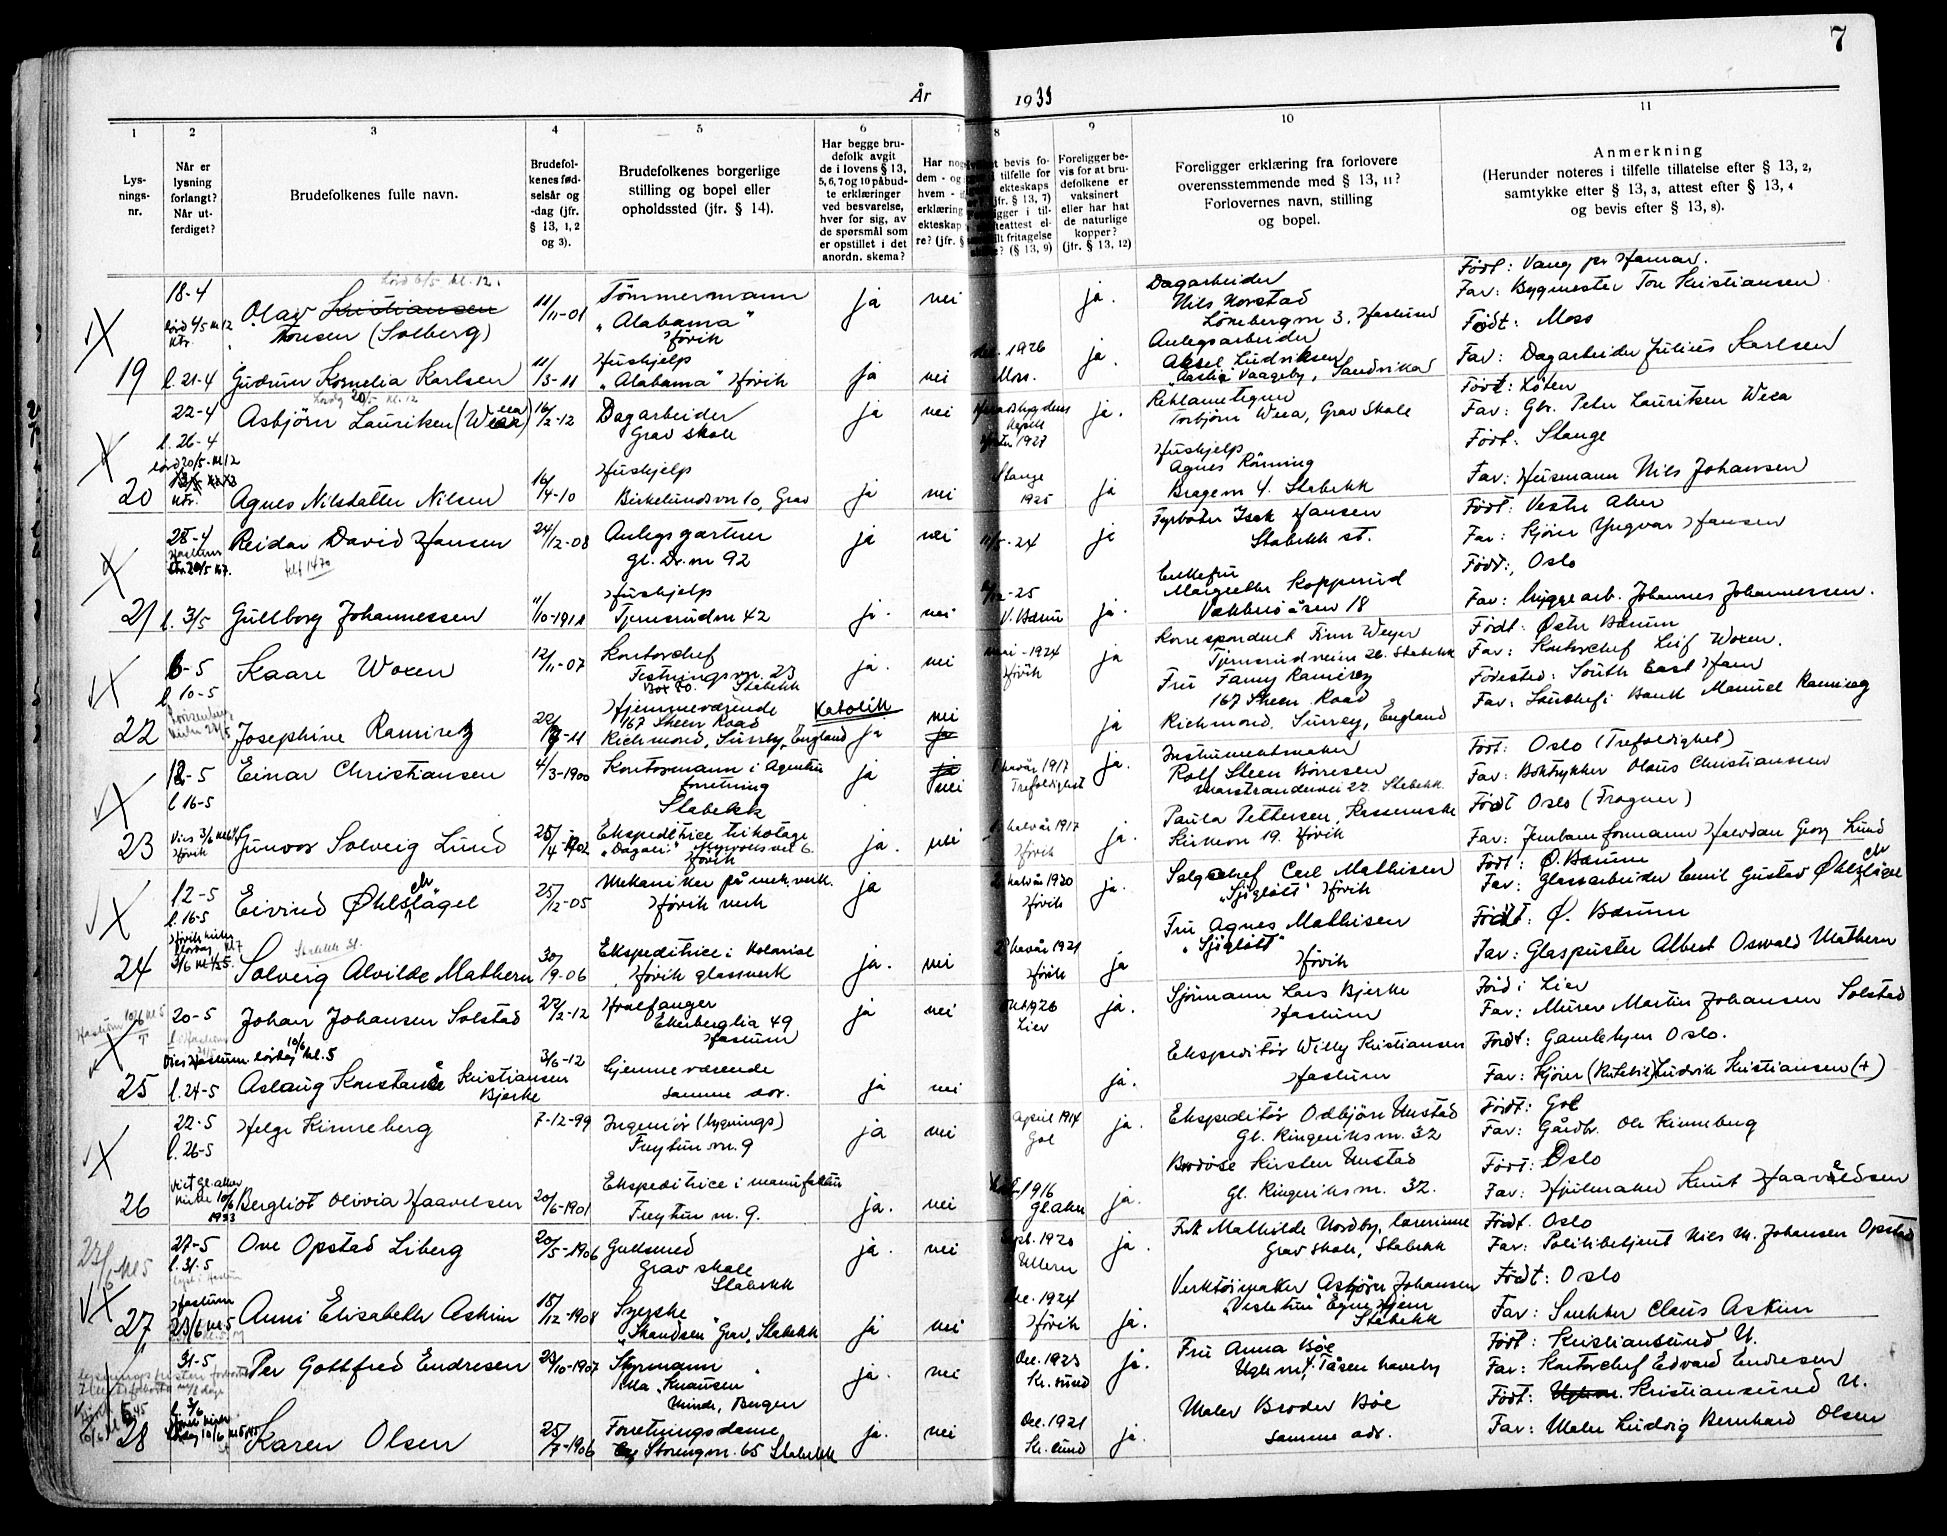 7
År 1933
1 2 3 4 5 6 7 8 9 10 11
Lys-
nings-
nr.
Når er
lysning
forlangt?
Når ut-
ferdiget?
Brudefolkenes fulle navn.
Brudefol-
kenes fød-
selsår og
-dag (jfr.
§ 13, 1, 2
og 3).
Brudefolkenes borgerlige
stilling og bopel eller
opholdssted (jfr. § 14).
Har begge bru-
defolk avgit
de i lovens § 13,
5, 6, 7 og 10 påbud-
te erklæringer
ved besvarelse,
hver for sig, av
de spørsmål som
er opstillet i det
anordn. skema?
Har nog
dem - og
hvem -
erklæring
ekteskap
re? (jfr. §
bevis fo-
tilfelle for
ekteskaps
(jfr. § 13, 7)
ligger i til-
teattest el-
fritagelse
? (§ 13, 9)
Foreligger be-
vis for at bru-
defolkene er
vaksinert
eller har hat
de naturlige
kopper?
(jfr. § 13, 12)
Foreligger erklæring fra forlovere
overensstemmende med § 13, 11?
Forlovernes navn, stilling
og bopel.
Anmerkning
(Herunder noteres i tilfelle tillatelse efter § 13, 2,
samtykke efter § 13, 3, attest efter § 13, 4
og bevis efter § 13, 8).
18-4
Olav Kristiansen
Tonsen (Solberg)
11/11-01
Tömmermann
"Alabama"
Hövik
ja nei ja.
Dagarbeider
Nils Norstad
Lönebergvn 3, Haslum
Födt: Vang pr Hamar.
Far: Bygmester Tore Kristiansen
19 l. 21-4
Gudrun Kornelia Karlsen
11/3-11
Hushjelp
"Alabama" Hövik
ja nei
1926
Moss.
ja.
Anlegsarbeider
Aksel Ludviksen
Vaageby, Sandvika
Födt: Moss
Far: Dagarbeider Julius Karlsen
22-4
l. 26-4
Asbjörn Lauritzen (Weea)
16/2-12
Dagarbeider
Grav skole
ja nei
1927
ja.
Reklametegner
Torbjörn Weea, Grav Skole
Födt: Löten
Far: Gbr. Peter Lauritzen Weea
20
lörd 20/5 kl 12
Agnes Nilsdatter Nilsen
16/4-10
Hushjelp
Birkelundsvn 10, Grav
ja nei
Stange
1925
ja
Hushjelp
Agnes Rönning
Bragevn 4. Stabekk
Födt: Stange
Far: Husmann Nils Johansen
28-4
Reidar David Hansen
tlf 1470
24/12-08
Anlegsgartner
gl. Dr. vn 92
ja nei
11/5-24
ja
Fyrböter Isak Hansen
Stabekk st.
Födt: Vestre Aker
Far: Kjörer Yngvar Hansen
21 l. 3/5
Gullborg Johannessen
11/10-1911
Hushjelp
Tjernsrudvn 42
ja. nei
12-25
V. Bærum
ja.
Enkefru
Margrethe Kopperud
Vækkeröåsen 18
Födt: Oslo
Far: byggearb. Johannes Johannessen.
6-5
l. 10-5
Kaare Woxen
12/11-07
Kontorchef
Festningsvn. 23
Box 80. Stabekk
ja. nei
mai-1924
Hövik
ja
Korrespondent Finn Weyer
Tjernsrudveien 26. Stabekk
Födt: Östre Bærum
Far: Kontorchef Leif Woxen.
22
Josephine Ramirez
22/7-11
Hjemmeværende
167 Sheen Road
Richmond, Surrey, England
Katolik
ja nei
ja
Fru Fanny Ramirez
167 Sheen Road
Richmond. Surrey, England
Födested: South East Ham
Far: Bank Manuel Ramirez
12-5
l. 16-5
Einar Christiansen
4/3-1900
Kontormann i Agentur
forretning
Stabekk
ja nei
1917
Trefoldighet
ja.
Instrumentmaker
Rolf Steen Börresen
Marstranderveien 22. Stabekk.
Födt: Oslo (Trefoldighet)
Far: Boktrykker Olaus Christiansen
23
Hövik
Gunvor Solveig Lund
25/4-1902
Ekspeditrice trikotage
"Dagali" 6.
Hövik
ja. nei
halvår 1917
Hövik
ja.
Paula Pettersen, Kassererske
Kirkevn 19. Hövik
Födt Oslo (Frogner)
Far: Jernbaneformann Halvdan Georg Lund
12-5
l. 16-5
Eivind Øhlschlägel
25/12-05
Mekaniker på mek. verk.
Hövik verk
ja
halvår 1920
Hövik
ja.
Salgschef Carl Mathisen
"Sjögløtt" Hövik
Födt: Ø. Bærum
Far: Glassarbeider Emil Gustav Øhlschlägel
24
Solveig Alvilde Mathern
30/9-06
Ekspeditrice i Kolonial
Hövik glassverk
ja. nei
halvår 1921
Hövik
ja
Fru Agnes Mathisen
"Sjögløtt"
Hövik
Födt: Ø. Bærum
Far: Glaspuster Albert Oswald Mathern
20-5
Johan Johansen Solstad
22/2-12
Hvalfanger
Ekeberglia 49
Haslum
ja nei
1926
Lier
ja.
Sjömann Lars Bjerke
Haslum
Föd i Lier
Far: Murer Martin Johansen Solstad
Vies Haslum lördag 10/6 kl. 5
25 l. 24-5
Aslaug Konstanse Kristiansen
Bjerke
3/6-12
Hjemmeværende
samme adr.
ja nei ja.
Ekspeditör Willy Kristiansen
Haslum
Födt: Gamlebyen Oslo.
Far: Kjörer Ludvik Kristiansen (+)
22-5
l. 26-5
Helge Kinneberg
7-12-99
Ingeniör (bygnings)
Freytun vn. 9
ja nei
April 1914
Gol
ja.
Ekspeditör Oddbjörn Unstad
Gl. Ringeriksvn. 32
Födt: Gol
Far: Gårdbr. Ole Kinneberg
26
Viet Gl. Aker
kirke 10/6
1933
Bergliot Olivia Haavelsen
20/6-1901
Ekspeditrice i manufaktur
Freytun vn. 9.
ja. nei
1916
Gl. Aker
ja.
Brodöse Kirsten Unstad
Gl. Ringeriksvn. 32.
Födt: Oslo
Far: Hjulmaker Knut Haavelsen
27-5
l. 31-5
Ove Opstad Liberg
20/5-1906
Gullsmed
Grav skole
Stabekk
ja. nei
Sept. 1920
Ullern
ja.
Frk Mathilde Nordby, lærerinne
Grav skole, Stabekk
Födt. Oslo
Far: Politibetjent Nils M. Johansen Opstad
27
Haslum
23/6 kl 5
Anni Elisabeth Askim
18/12-1908
Syerske
"Skandsen" Grav, Stabekk
ja nei
Dec. 1924
Hövik
ja.
Verktöimaker Asbjörn Johansen
"Vesletun" Egne Hjem
Stabekk
Födt: Oslo
Far: Snekker Claus Askim
31-5
l. 3/6
Per Gottfred Endresen
29/10-1907
Styrmann
Villa "Knausen"
Minde, Bergen
ja. nei
Dec. 1923
Kr. sund
ja.
Fru Anna Böe
Tåsen haveby
Födt: Kristiansund N.
Far: Kontorchef Edvard Endresen
28
Karen Olsen
25/7-1906
Forretningsdame
Storengvn. 65 Stabekk
ja. nei
Dec. 1921
Kr. sund
ja.
Maler Broder Böe
samme adr.
Födt: Kristiansund N.
Far: Maler Ludvig Bernhard Olsen